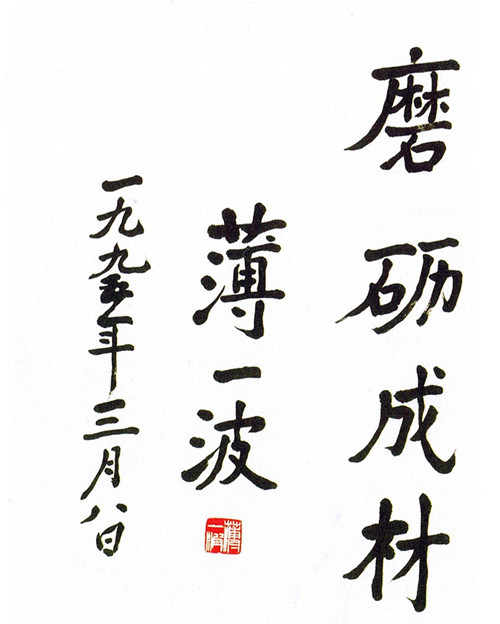 磨砺成材
薄一波
一九九五年三月八日
薄一波